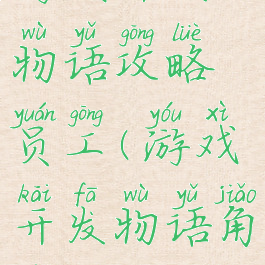 wù yǔ gōng lüè
物语攻略
yuán gōng yóu xì
员工(游戏
kāi fā wù yǔ jiǎo
开发物语角